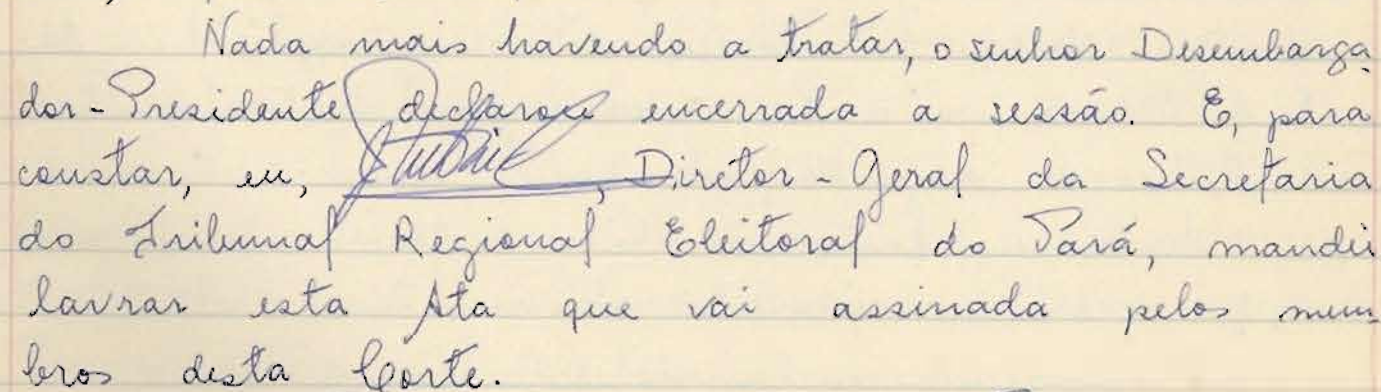 Nada mais havendo a tratar, o senhor Desembarga
dor-Presidente declarou encerrada a sessão. E, para
constar, eu, , Diretor-Geral da Secretaria
do Tribunal Regional Eleitoral do Pará, mandei
lavrar esta Ata que vai assinada pelos mem-
bros desta Corte.